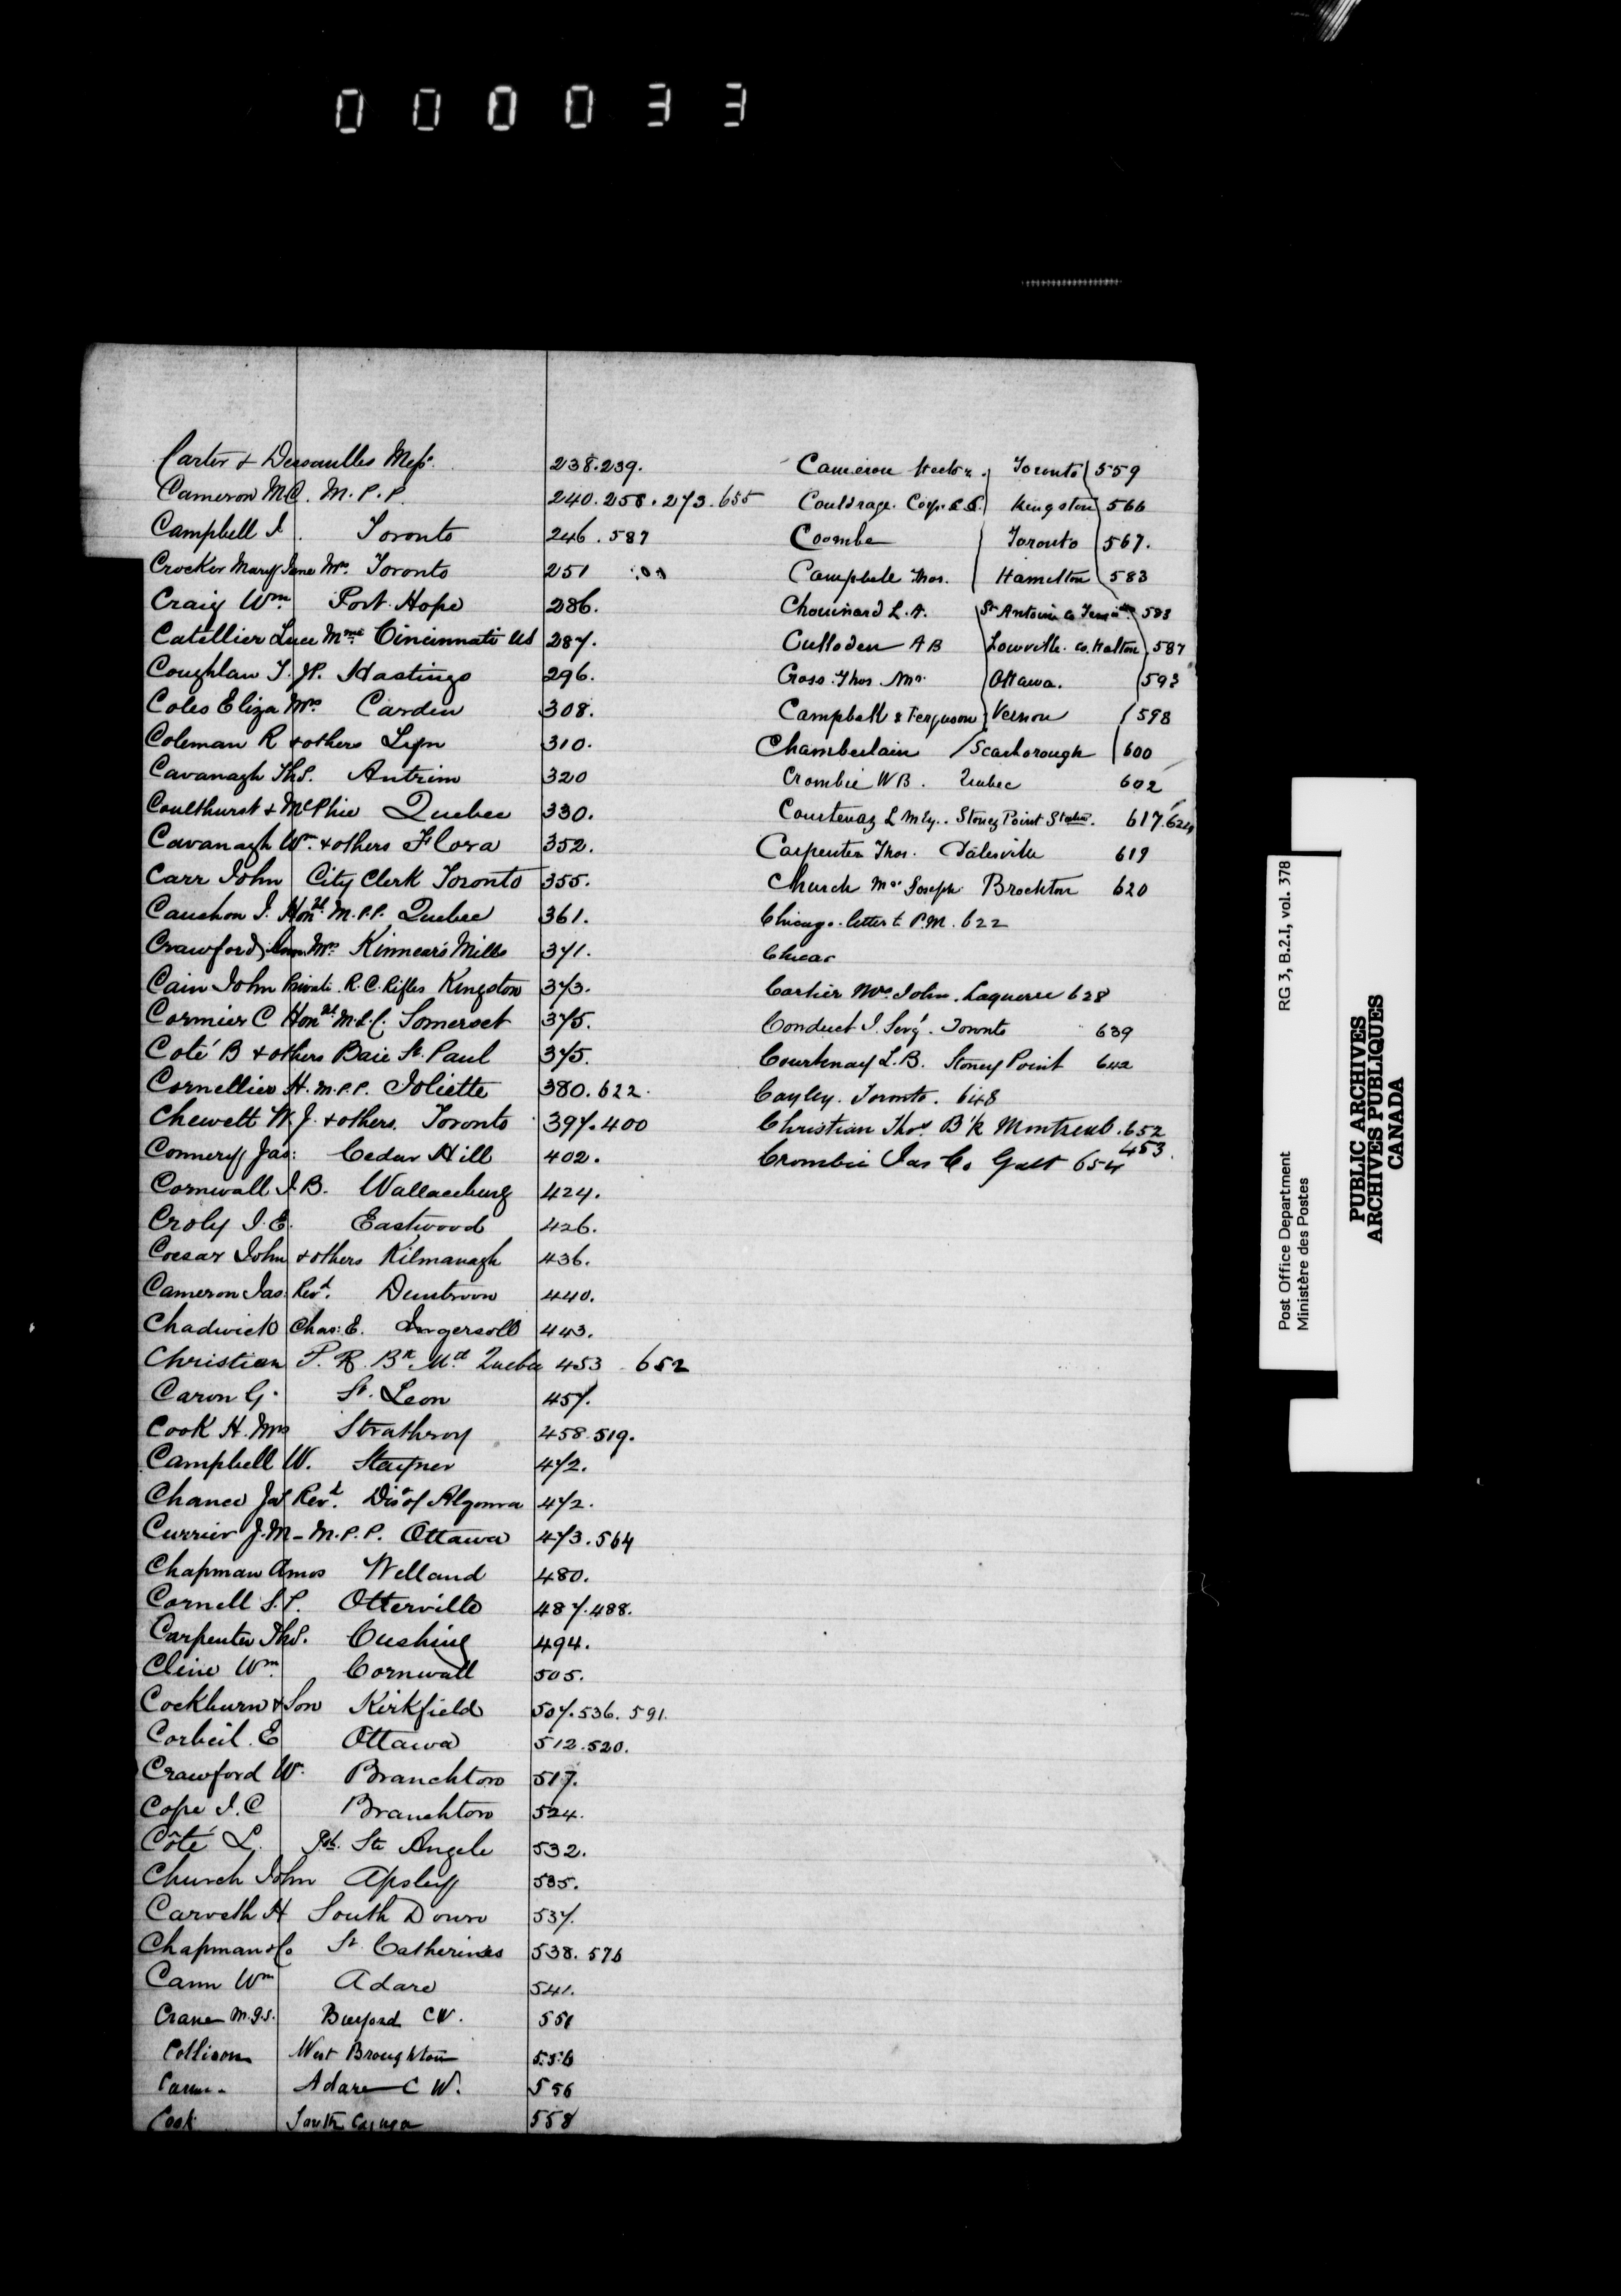 000033
Carter & Dessaulles Messrs. 238.239.
Cameron M.C. M.P.P. 240.258.273.655
Campbell J. Toronto 246.587
Crocker Mary Jane Mrs. Toronto 251
Craig Wm. Port Hope 286.
Catellier Luce Mme. Cincinnati US 287.
Coughlan T. JP. Hastings 296.
Coles Eliza Mrs. Carden 308.
Coleman R & others Lyn 310.
Cavanagh Ths. Antrim 320
Coulthurst & McPhie Quebec 330.
Cavanagh Wm. & others Flora 352.
Carr John City Clerk Toronto 355.
Cauchon J. Honbl. M.P.P. Quebec 361.
Crawford Mrs. Kinnear's Mills 371.
Cain John Private R.C. Rifles Kingston 373.
Cormier C Honbl. M.L.C. Somerset 375.
Coté B & others Baie St. Paul 375.
Cornellier H. M.P.P. Joliette 380.622.
Chewett W.J. & others. Toronto 397.400
Connery Jas: Cedar Hill 402.
Cornwall J.B. Wallaceburg 424.
Croly J.E. Eastwood 426.
Coesar John & others Kilmanagh 436.
Cameron Jas. Revd. Duntroon 440.
Chadwick Chas: E. Ingersoll 443.
Christian T. R. Bk. Md. Quebec 453 . 652
Caron G. St. Leon 457.
Cook H. Mrs Strathroy 458.519.
Campbell W. Stayner 472.
Chance Jas Revd. Dis of Algoma 472.
Currier J.M - M.P.P. Ottawa 473.564
Chapman Amos Welland 480.
Cornell S.P. Otterville 487.488.
Carpenter Ths. Cushing 494.
Cline Wm. Cornwall 505.
Cockburn & Son Kirkfield 507.536.591.
Corbeil. E Ottawa 512.520.
Crawford W. Branchton 517.
Cope J.C Branchton 524.
Côté L. Ste Angele 532.
Church John Apsley 535.
Carveth H South Douro 537.
Chapman & Co St. Catherines 538.576
Cann Wm Adare 541.
Crane M.G.S. Burford CW. 551
Collison West Broughton 556
Adare C W. 556
Cook South Cayuga 558
Cameron Hector. Toronto 559
Couldrage. Corp. Kingston 566
Coombe Toronto 567.
Campbell Thos. Hamilton 583
Chouinard L.A. St Antoine 583
Culloden AB Lowville. Co. Halton 587
Cross. Thos. Mr. Ottawa. 593
Campbell & Ferguson Vernon 598
Chamberlain Scarborough 600
Crombie WB. Quebec 602
Courtenay L Stoney Point Station. 617.624
Carpenter Thos. Dalesville 619
Church Mrs Joseph. Brockton 620
Chicago. letter t P.M. 622
Chicac
Cartier Mrs. John. Laguerre 628
Conduct J. Sergt. Toronto 639
Courtenay L.B. Stoney Point 642
Cayley. Toronto. 648
Christian Thos. B'k Montreal. 652
453.
Crombie Jas Co Galt 654
Post Office Department RG 3, B.2.I, vol. 378
Ministère des Postes
PUBLIC ARCHIVES
ARCHIVES PUBLIQUES
CANADA